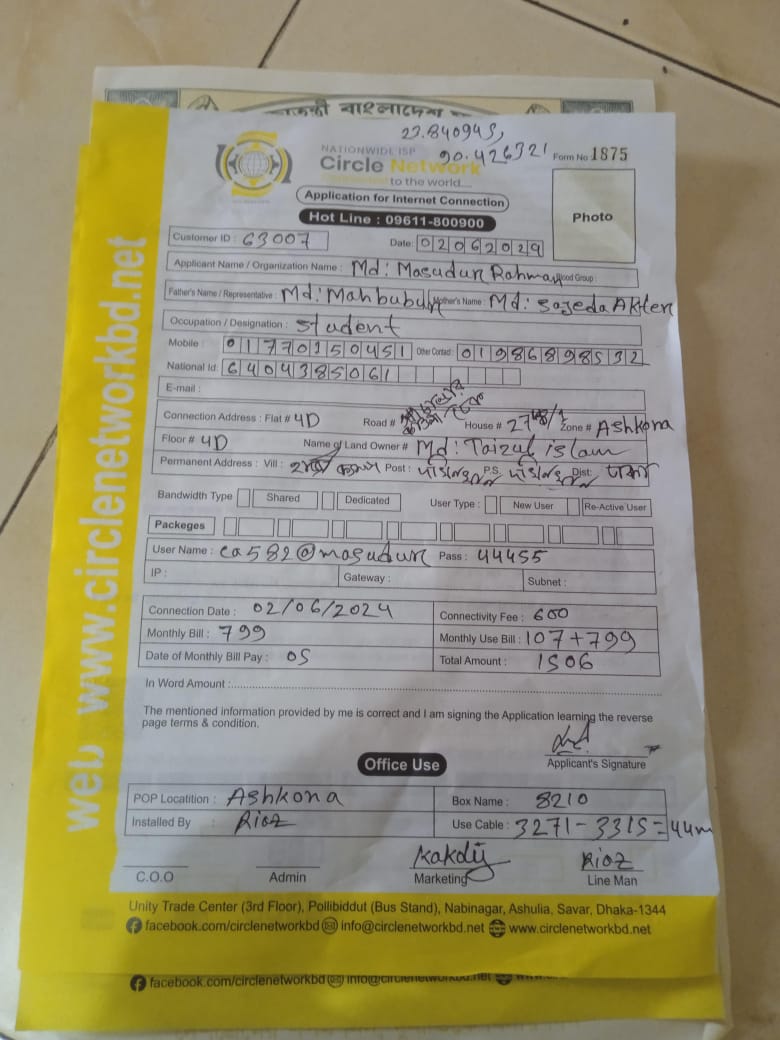 বাংলাদেশ
23.840945,
90.426321
NATIONWIDE ISP
Circle Network
Connected to the world....
Form No 1875
Application for Internet Connection
Hot Line : 09611-800900
Photo
Customer ID : 63007 Date: 02062029
Applicant Name / Organization Name : Md: Masudur Rahman Blood Group :
Father's Name / Representative : Md: Mahbubur Mother's Name : Md: Sajeda Akter
Occupation / Designation : student
Mobile : 01770150451 Other Contact : 01986898532
National Id: 6404385061
E-mail :
Connection Address : Flat # 4D Road # House # 274/1 Zone # Ashkona
Floor # 4D Name of Land Owner # Md: Taizul islam
Permanent Address : Vill : Post : P.S. Dist: ঢাকা
Bandwidth Type Shared Dedicated User Type : New User Re-Active User
Packeges
User Name : ca582@masudur Pass : 44455
IP : Gateway : Subnet :
Connection Date : 02/06/2024 Connectivity Fee : 600
Monthly Bill : 799 Monthly Use Bill : 107+799
Date of Monthly Bill Pay : 05 Total Amount : 1506
In Word Amount :
The mentioned information provided by me is correct and I am signing the Application learning the reverse
page terms & condition.
Applicant's Signature
Office Use
POP Locatition : Ashkona Box Name : 8210
Installed By : Rioz Use Cable : 3271-3315=44m
Rioz
C.O.O Admin Marketing Line Man
Unity Trade Center (3rd Floor), Pollibiddut (Bus Stand), Nabinagar, Ashulia, Savar, Dhaka-1344
facebook.com/circlenetworkbd info@circlenetworkbd.net www.circlenetworkbd.net
facebook.com/circlenetworkbd info@circlenetworkbd.net
web: www.circlenetworkbd.net